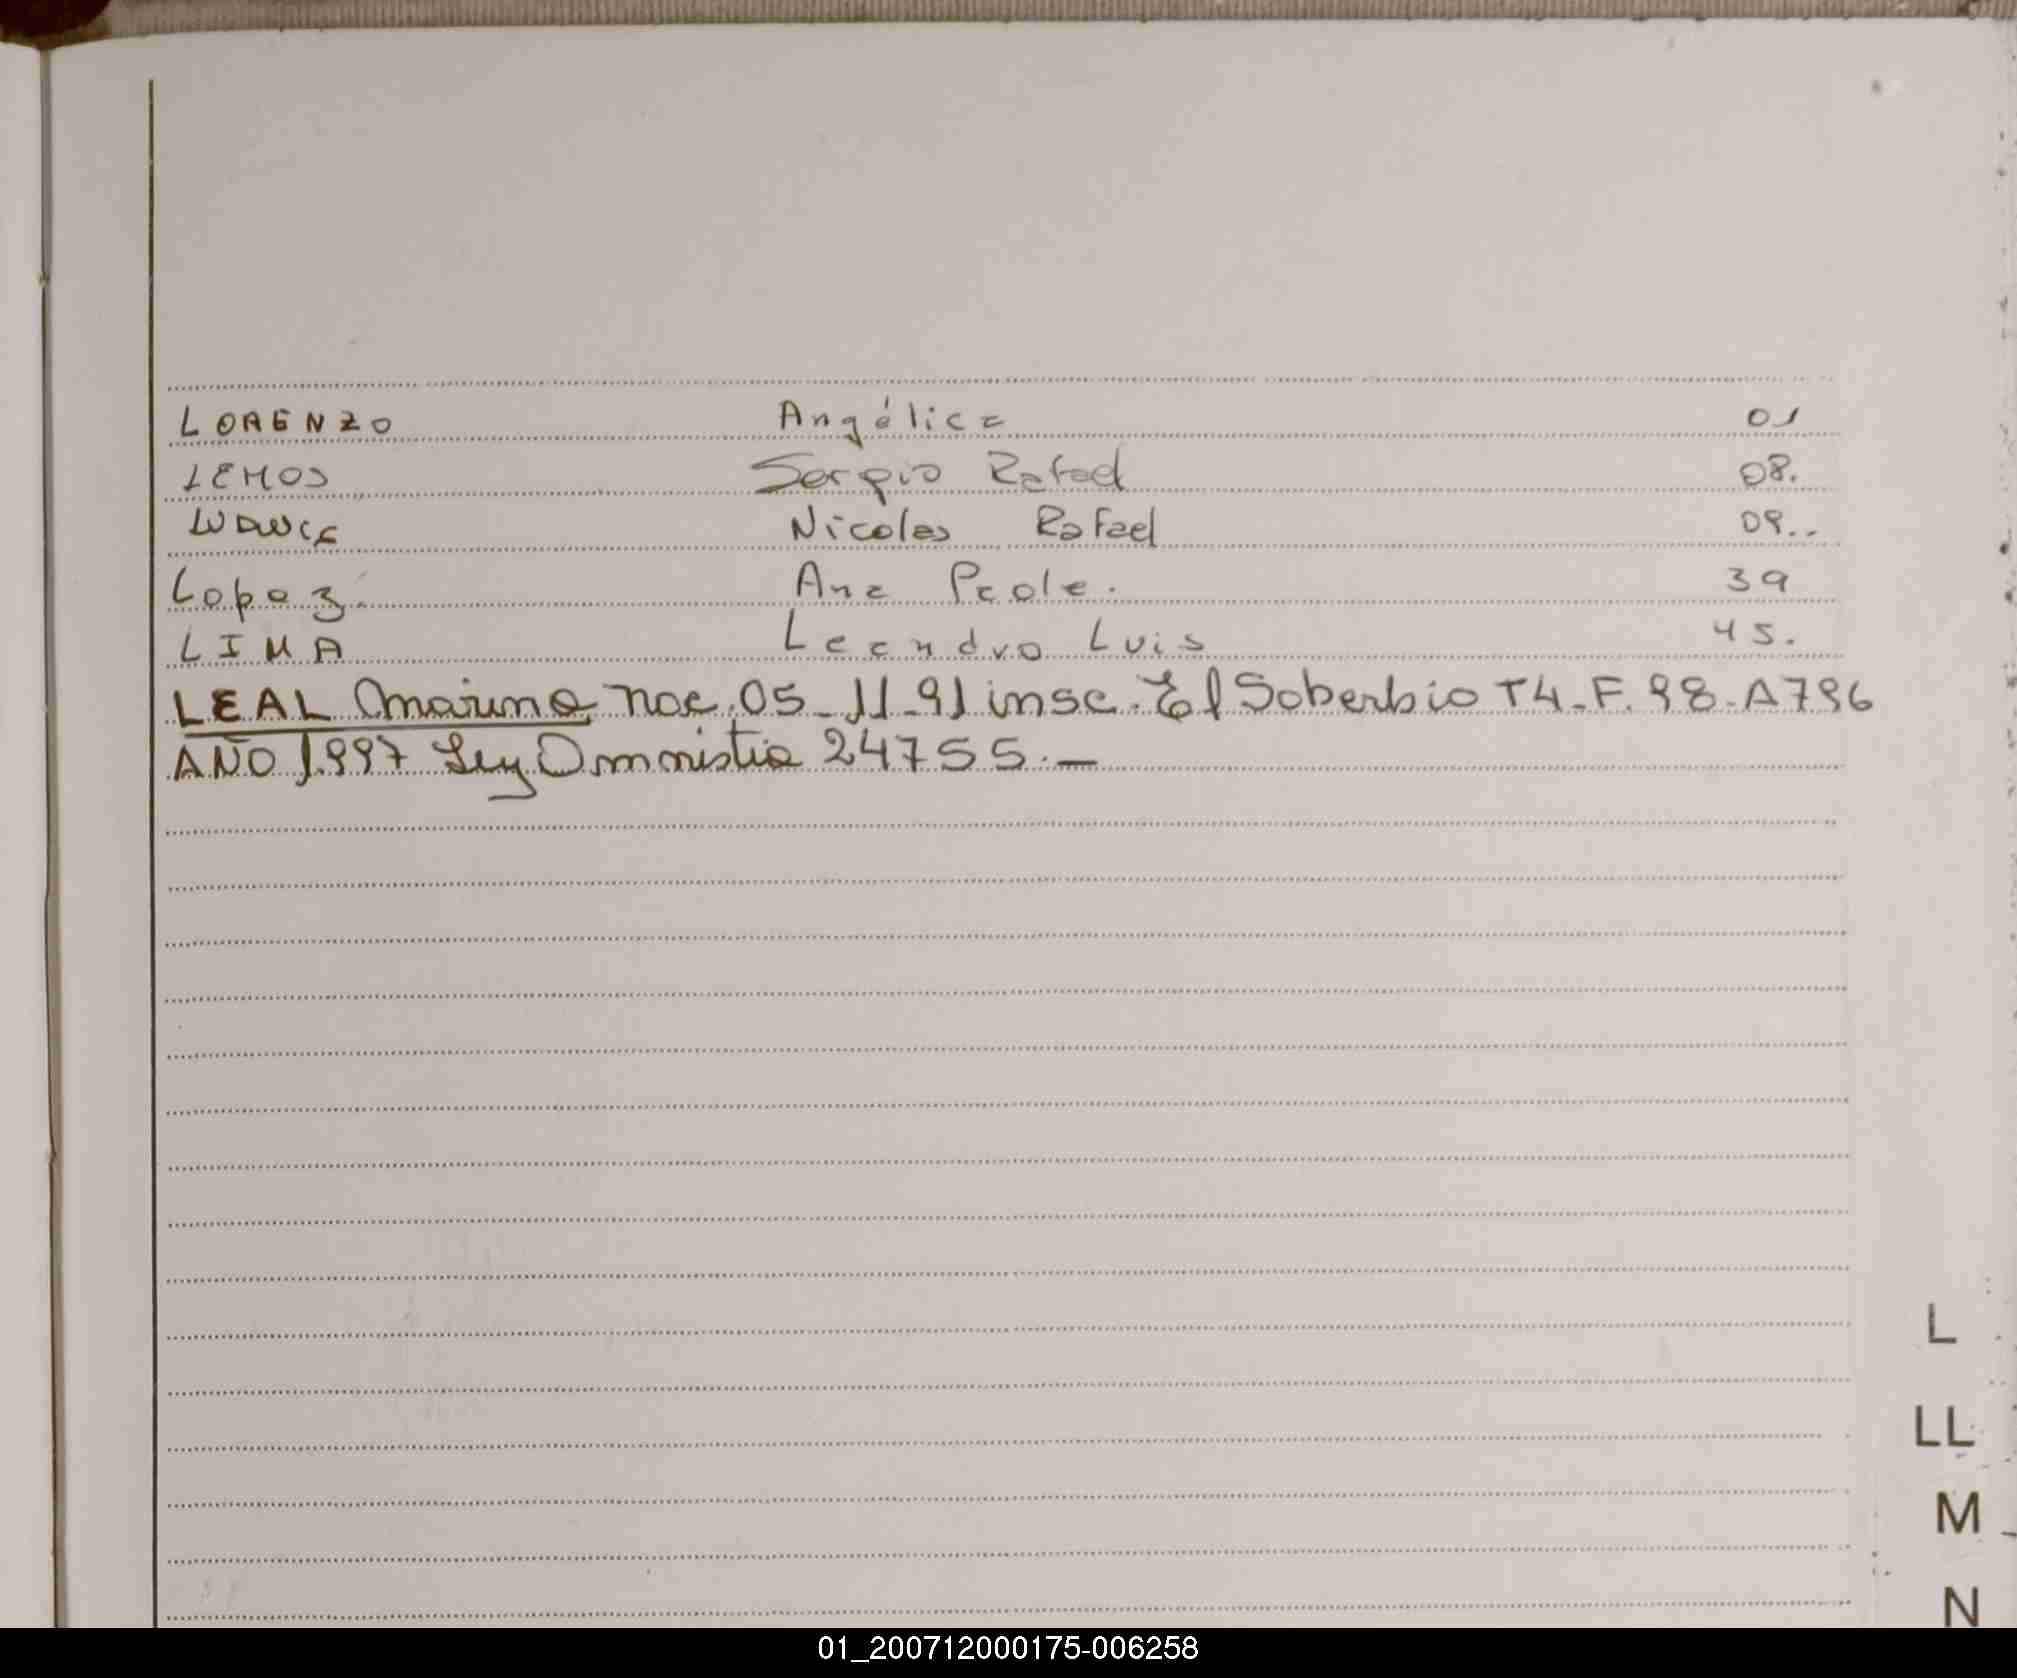 LORENZO Angélica 01
LEMOS Sergio Rafael 08.
LUDWIG Nicolas Rafael 09..
Lopez. Ana Paola. 39
LIMA Leandro Luis 45.
LEAL Marina nac. 05-11-91 insc. El Soberbio T4-F.98-A796
AÑO 1.997 Ley Amnistia 24755.-
L
LL
M
N
01_200712000175-006258